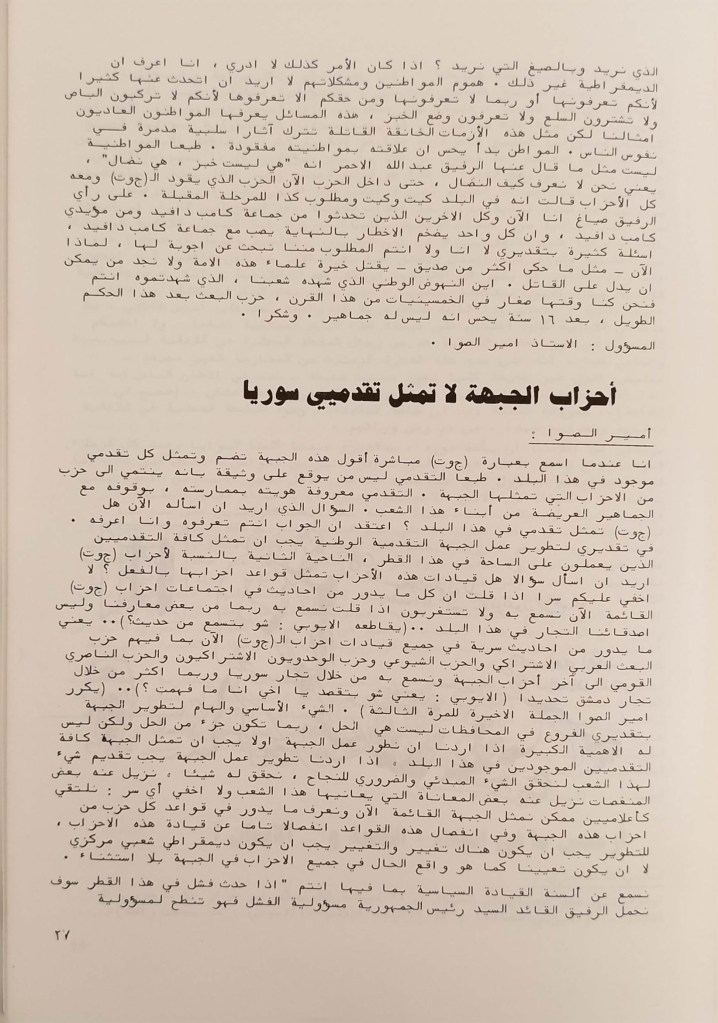 الذي نريد وبالصيغ التي نريد ؟ اذا كان الأمر كذلك لا ادري ، انا اعرف ان
الديمقراطية غير ذلك . هموم المواطنين ومشكلاتهم لا اريد ان اتحدث عنها كثيرا
لأنكم تعرفونها أو ربما لا تعرفونها ومن حقكم الا تعرفوها لأنكم لا تركبون الباص
ولا تشترون السلع ولا تعرفون وضع الخبز ، هذه المسائل يعرفها المواطنون العاديون
امثالنا لكن مثل هذه الأزمات الخانقة القاتلة تترك آثارا سلبية مدمرة فـــي
نفوس الناس . المواطن بدأ يحس ان علاقته بمواطنيته مفقودة . طبعا المواطنيـة
ليست مثل ما قال عنها الرفيق عبد الله الاحمر انه "هي ليست خبز ، هي نضال" ،
يعني نحن لا نعرف كيف النضال ، حتى داخل الحزب الآن الحزب الذي يقود الـ(ج‌وت) ومعه
كل الأحزاب قالت انه في البلد كيت وكيت ومطلوب كذا للمرحلة المقبلة . على رأي
الرفيق صياغ انا الآن وكل الاخرين الذين تحدثوا من جماعة كامب دافيد ومن مؤيدي
كامب دافيد ، وان كل واحد يضخم الاخطار بالنهاية يصب مع جماعة كامب دافيد ،
اسئلة كثيرة بتقديري لا انا ولا انتم المطلوب مننا نبحث عن اجوبة لها ، لماذا
الآن ــ مثل ما حكى اكثر من صديق ــ يقتل خيرة علماء هذه الامة ولا نجد من يمكن
ان يدل على القاتل . اين النهوض الوطني الذي شهده شعبنا ، الذي شهدتموه انتم
فنحن كنا وقتها صغار في الخمسينيات من هذا القرن ، حزب البعث بعد هذا الحكم
الطويل ، بعد ١٦ سنة يحس انه ليس له جماهير . وشكرا .
المسؤول : الاستاذ امير الصوا .
أحزاب الجبهة لا تمثل تقدميي سوريا
أمير الصوا :
انا عندما اسمع بعبارة (ج‌وت) مباشرة أقول هذه الجبهة تضم وتمثل كل تقدمي
موجود في هذا البلد . طبعا التقدمي ليس من يوقع على وثيقة بانه ينتمي الى حزب
من الاحزاب التي تمثلها الجبهة . التقدمي معروفة هويته بممارسته ، بوقوفه مع
الجماهير العريضة من أبناء هذا الشعب . السؤال الذي اريد ان اسأله الآن هل
(ج‌وت) تمثل تقدمي في هذا البلد ؟ اعتقد ان الجواب انتم تعرفوه وانا اعرفه .
في تقديري لتطوير عمل الجبهة التقدمية الوطنية يجب ان تمثل كافة التقدميين
الذين يعملون على الساحة في هذا القطر ، الناحية الثانية بالنسبة لأحزاب (ج‌وت)
اريد ان اسأل سؤالا هل قيادات هذه الأحزاب تمثل قواعد احزابها بالفعل ؟ لا
اخفي عليكم سرا اذا قلت ان كل ما يدور من احاديث في اجتماعات احزاب (ج‌وت)
القائمة الآن نسمع به ولا تستغربون اذا قلت نسمع به ربما من بعض معارفنا وليس
اصدقائنا التجار في هذا البلد ..(يقاطعه الايوبي : شو بتسمع من حديث؟).. يعني
ما يدور من احاديث سرية في جميع قيادات احزاب الـ(ج‌وت) الآن بما فيهم حزب
البعث العربي الاشتراكي والحزب الشيوعي وحزب الوحدويون الاشتراكيون والحزب الناصري
القومي الى آخر أحزاب الجبهة ونسمع به من خلال تجار سوريا وربما اكثر من خلال
تجار دمشق تحديدا (الايوبي : يعني شو بتقصد يا اخي انا ما فهمت ؟).. (يكرر
امير الصوا الجملة الاخيرة للمرة الثالثة) . الشيء الأساسي والهام لتطوير الجبهة
بتقديري الفروع في المحافظات ليست هي الحل ، ربما تكون جزء من الحل ولكن ليس
له الاهمية الكبيرة اذا اردنا ان نطور عمل الجبهة اولا يجب ان تمثل الجبهة كافة
التقدميين الموجودين في هذا البلد ، اذا اردنا تطوير عمل الجبهة يجب تقديم شيء
لهذا الشعب لنحقق الشيء المبدئي والضروري للنجاح ، نحقق له شيئا ، نزيل عنه بعض
المنغصات نزيل عنه بعض المعاناة التي يعانيها هذا الشعب ولا اخفي أي سر : نلتقي
كأعلاميين ممكن نمثل الجبهة القائمة الآن ونعرف ما يدور في قواعد كل حزب من
احزاب هذه الجبهة وفي انفصال هذه القواعد انفصالا تاما عن قيادة هذه الاحزاب ،
للتطوير يجب ان يكون هناك تغيير والتغيير يجب ان يكون ديمقراطي شعبي مركزي
لا ان يكون تعيينا كما هو واقع الحال في جميع الاحزاب في الجبهة بلا استثناء .
نسمع عن ألسنة القيادة السياسية بما فيها انتم "اذا حدث فشل في هذا القطر سوف
نحمل الرفيق القائد السيد رئيس الجمهورية مسؤولية الفشل فهو تنطح لمسؤولية
٢٧